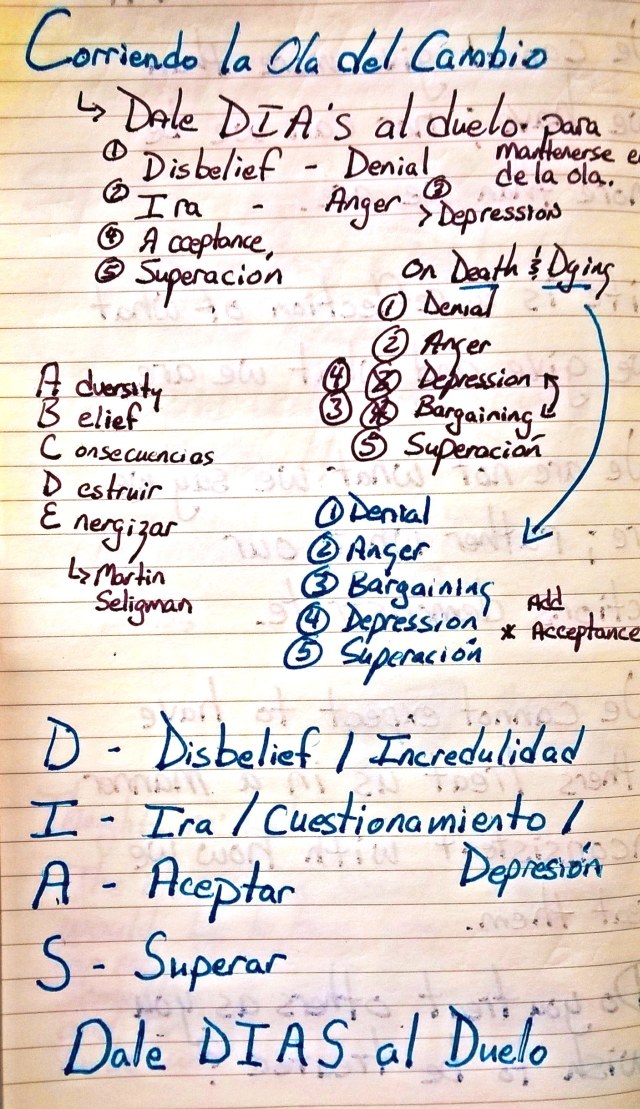 Corriendo la Ola del Cambio
↳ Dale DIA's al duelo para
mantenerse e
de la ola.
① Disbelief - Denial
② Ira - Anger ③
> Depression
④ Acceptance,
⑤ Superación
On Death & Dying
① Denial
② Anger
④ ③ Depression
③ ④ Bargaining
⑤ Superación
A dversity
B elief
C onsecuencias
D estruir
E nergizar
↳ Martin
Seligman
① Denial
② Anger
③ Bargaining
④ Depression
⑤ Superación
Add
* Acceptance
D - Disbelief / Incredulidad
I - Ira / Cuestionamiento /
Depresión
A - Aceptar
S - Superar
Dale DIAS al Duelo